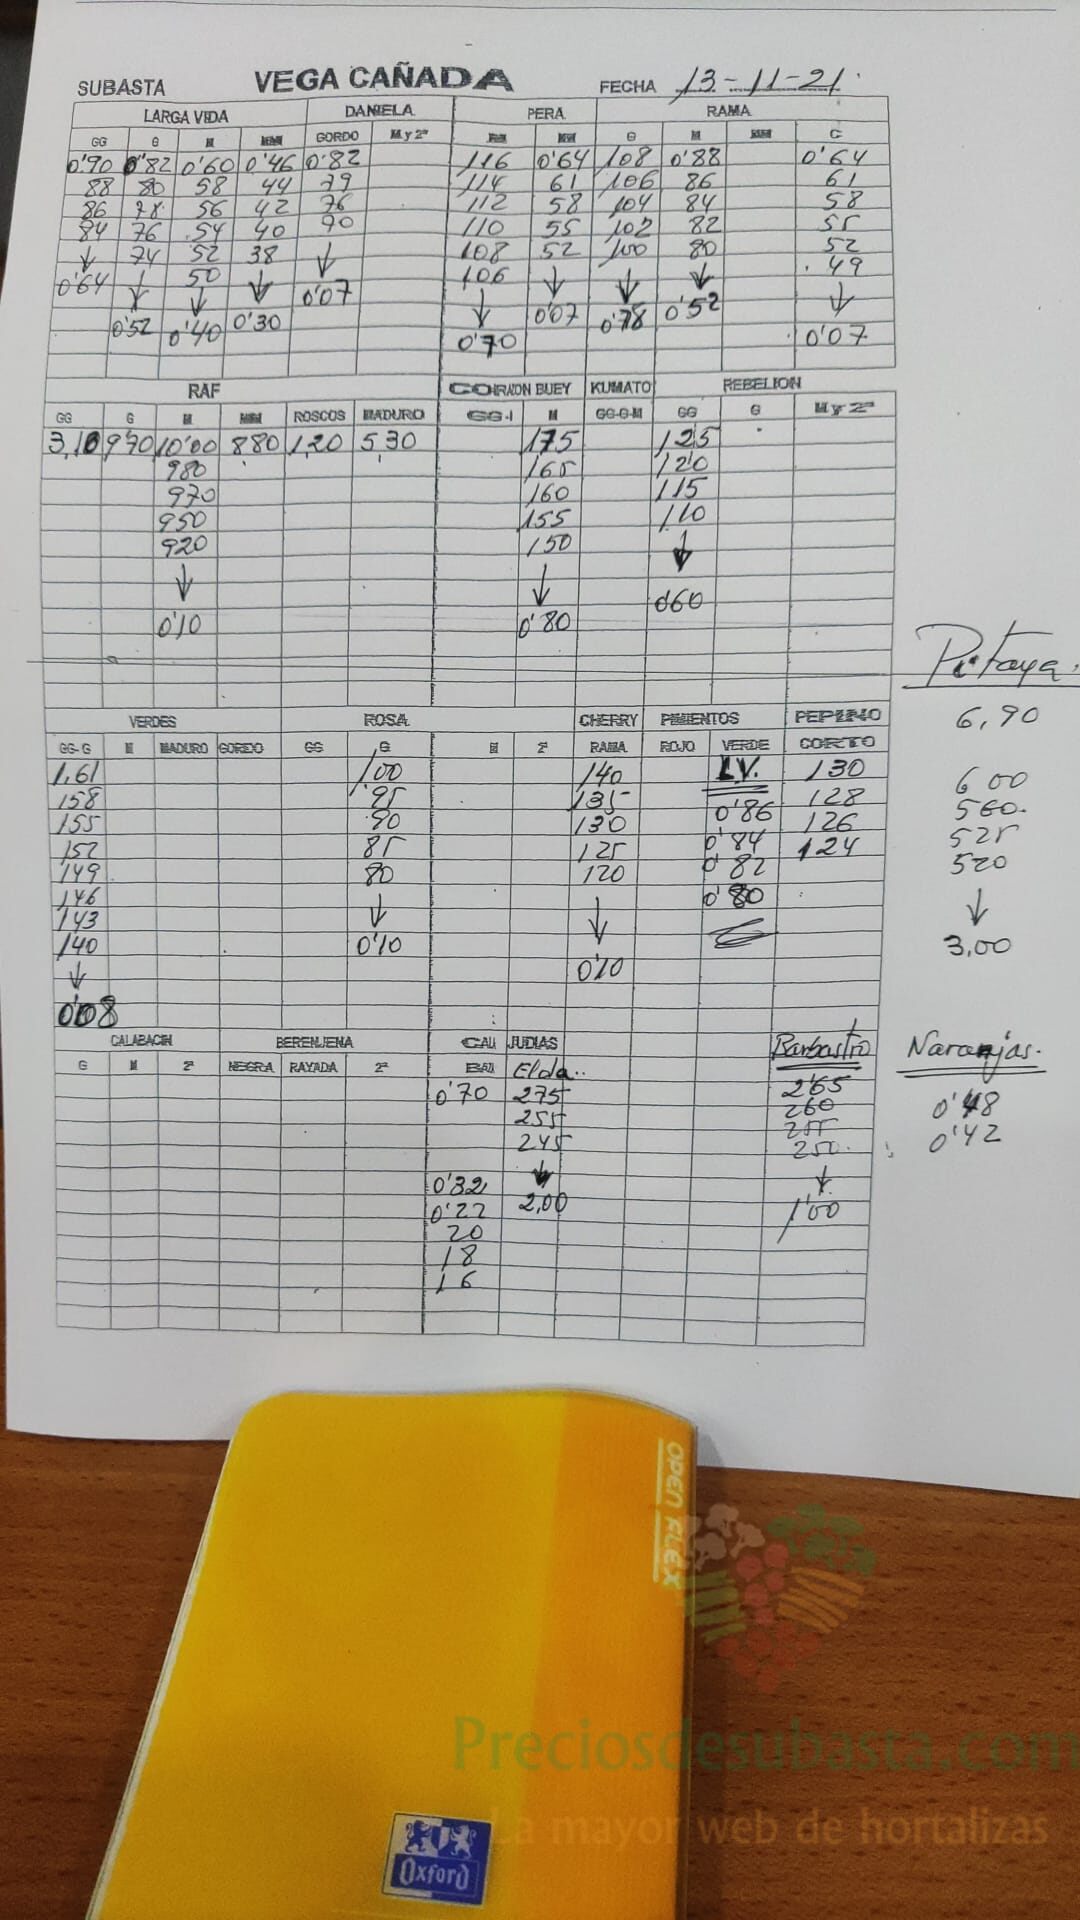 SUBASTA VEGA CAÑADA FECHA 13-11-21
LARGA VIDA DANIELA PERA RAMA
GG G M MM GORDO M y 2ª MM G M MM C
0'90 0'82 0'60 0'46 0'82 116 0'64 108 0'88 0'64
88 80 58 44 79 114 61 106 86 61
86 78 56 42 76 112 58 104 84 58
84 76 54 40 90 110 55 102 82 55
↓ 74 52 38 ↓ 108 52 100 80 52
0'64 ↓ 50 ↓ 0'07 106 ↓ ↓ ↓ 49
0'52 ↓ 0'40 0'30 ↓ 0'07 0'78 0'52 ↓
0'70 0'07
RAF CORAZON BUEY KUMATO REBELION
GG G M MM ROSCOS MADURO GG-1 M GG-G-M GG G M y 2ª
3,10 9'70 10'00 880 1,20 5,30 175 125
980 165 120
970 160 115
950 155 110
920 150 ↓
↓ ↓ 060
0'10 0'80
Pitaya.
VERDES ROSA CHERRY PIMIENTOS PEPINO 6,90
GG-G M MADURO GORDO GG G M 2ª RAMA ROJO VERDE CORTO
1,61 1,00 140 LV. 130 600
158 95 135 0'86 128 560.
155 90 130 0'84 126 525
152 85 125 0'82 124 520
149 80 120 0'80 ↓
146 ↓ ↓ 3,00
143 0'10 0'10
140
↓
0'08
CALABACIN BERENJENA CALA JUDIAS Barbastro Naranjas.
G M 2ª NEGRA RAYADA 2ª BAZA Elda..
0'70 275 2'65 0'48
255 260 0'42
245 255
↓ 250.
0'32 2,00 ↓
0'22 1'00
20
18
16
OPEN FLEX
Preciosdesubasta.com
La mayor web de hortalizas
Oxford